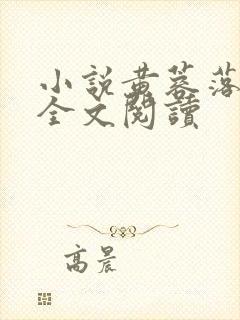 小說黃蓉落
全文閱讀
高晨